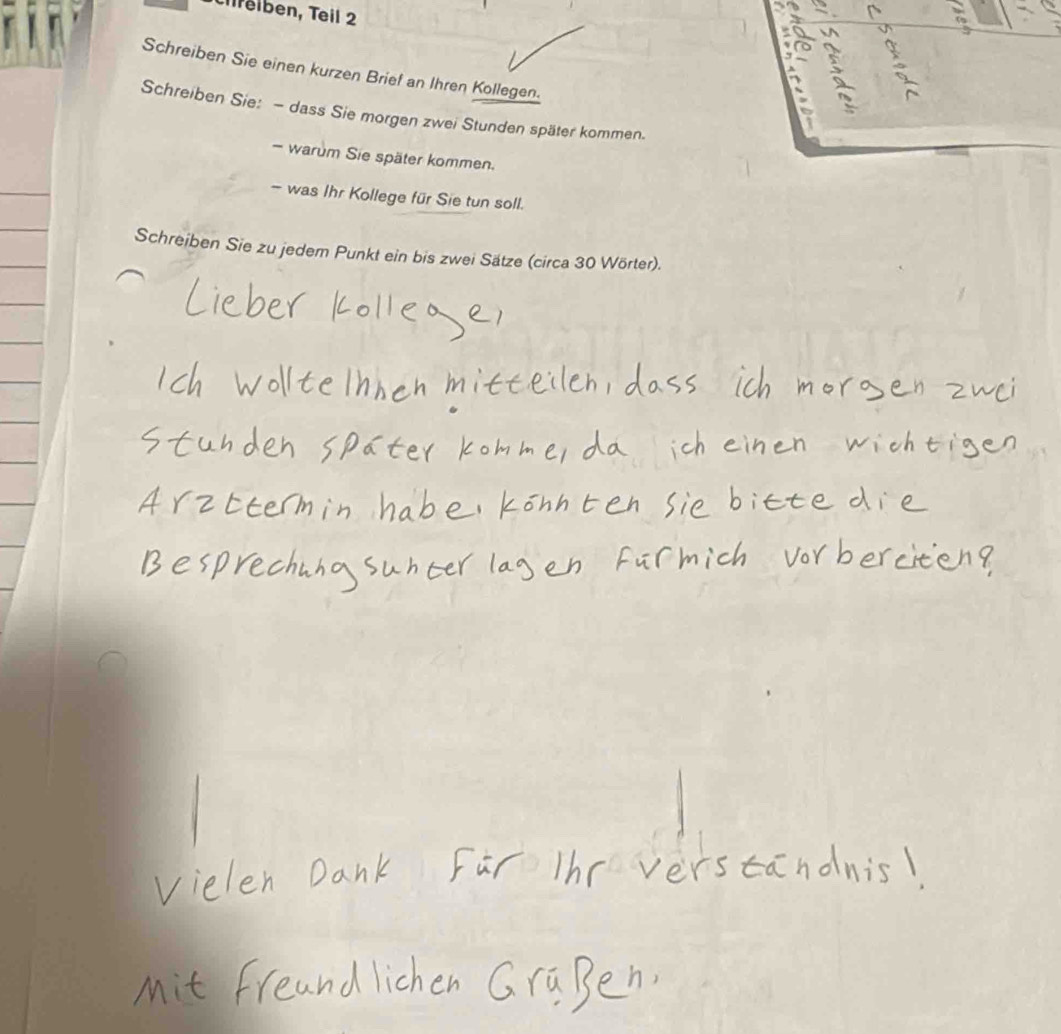 Schreiben, Teil 2
Schreiben Sie einen kurzen Brief an Ihren Kollegen.
Schreiben Sie: – dass Sie morgen zwei Stunden später kommen.
– warum Sie später kommen.
– was Ihr Kollege für Sie tun soll.
Schreiben Sie zu jedem Punkt ein bis zwei Sätze (circa 30 Wörter).
Lieber Kollege,
Ich wollte Ihnen mitteilen, dass ich morgen zwei
Stunden später komme, da ich einen wichtigen
Arzttermin habe. Könnten Sie bitte die
Besprechungsunterlagen für mich vorbereiten?
Vielen Dank für Ihr Verständnis!
Mit freundlichen Grüßen.
stunden